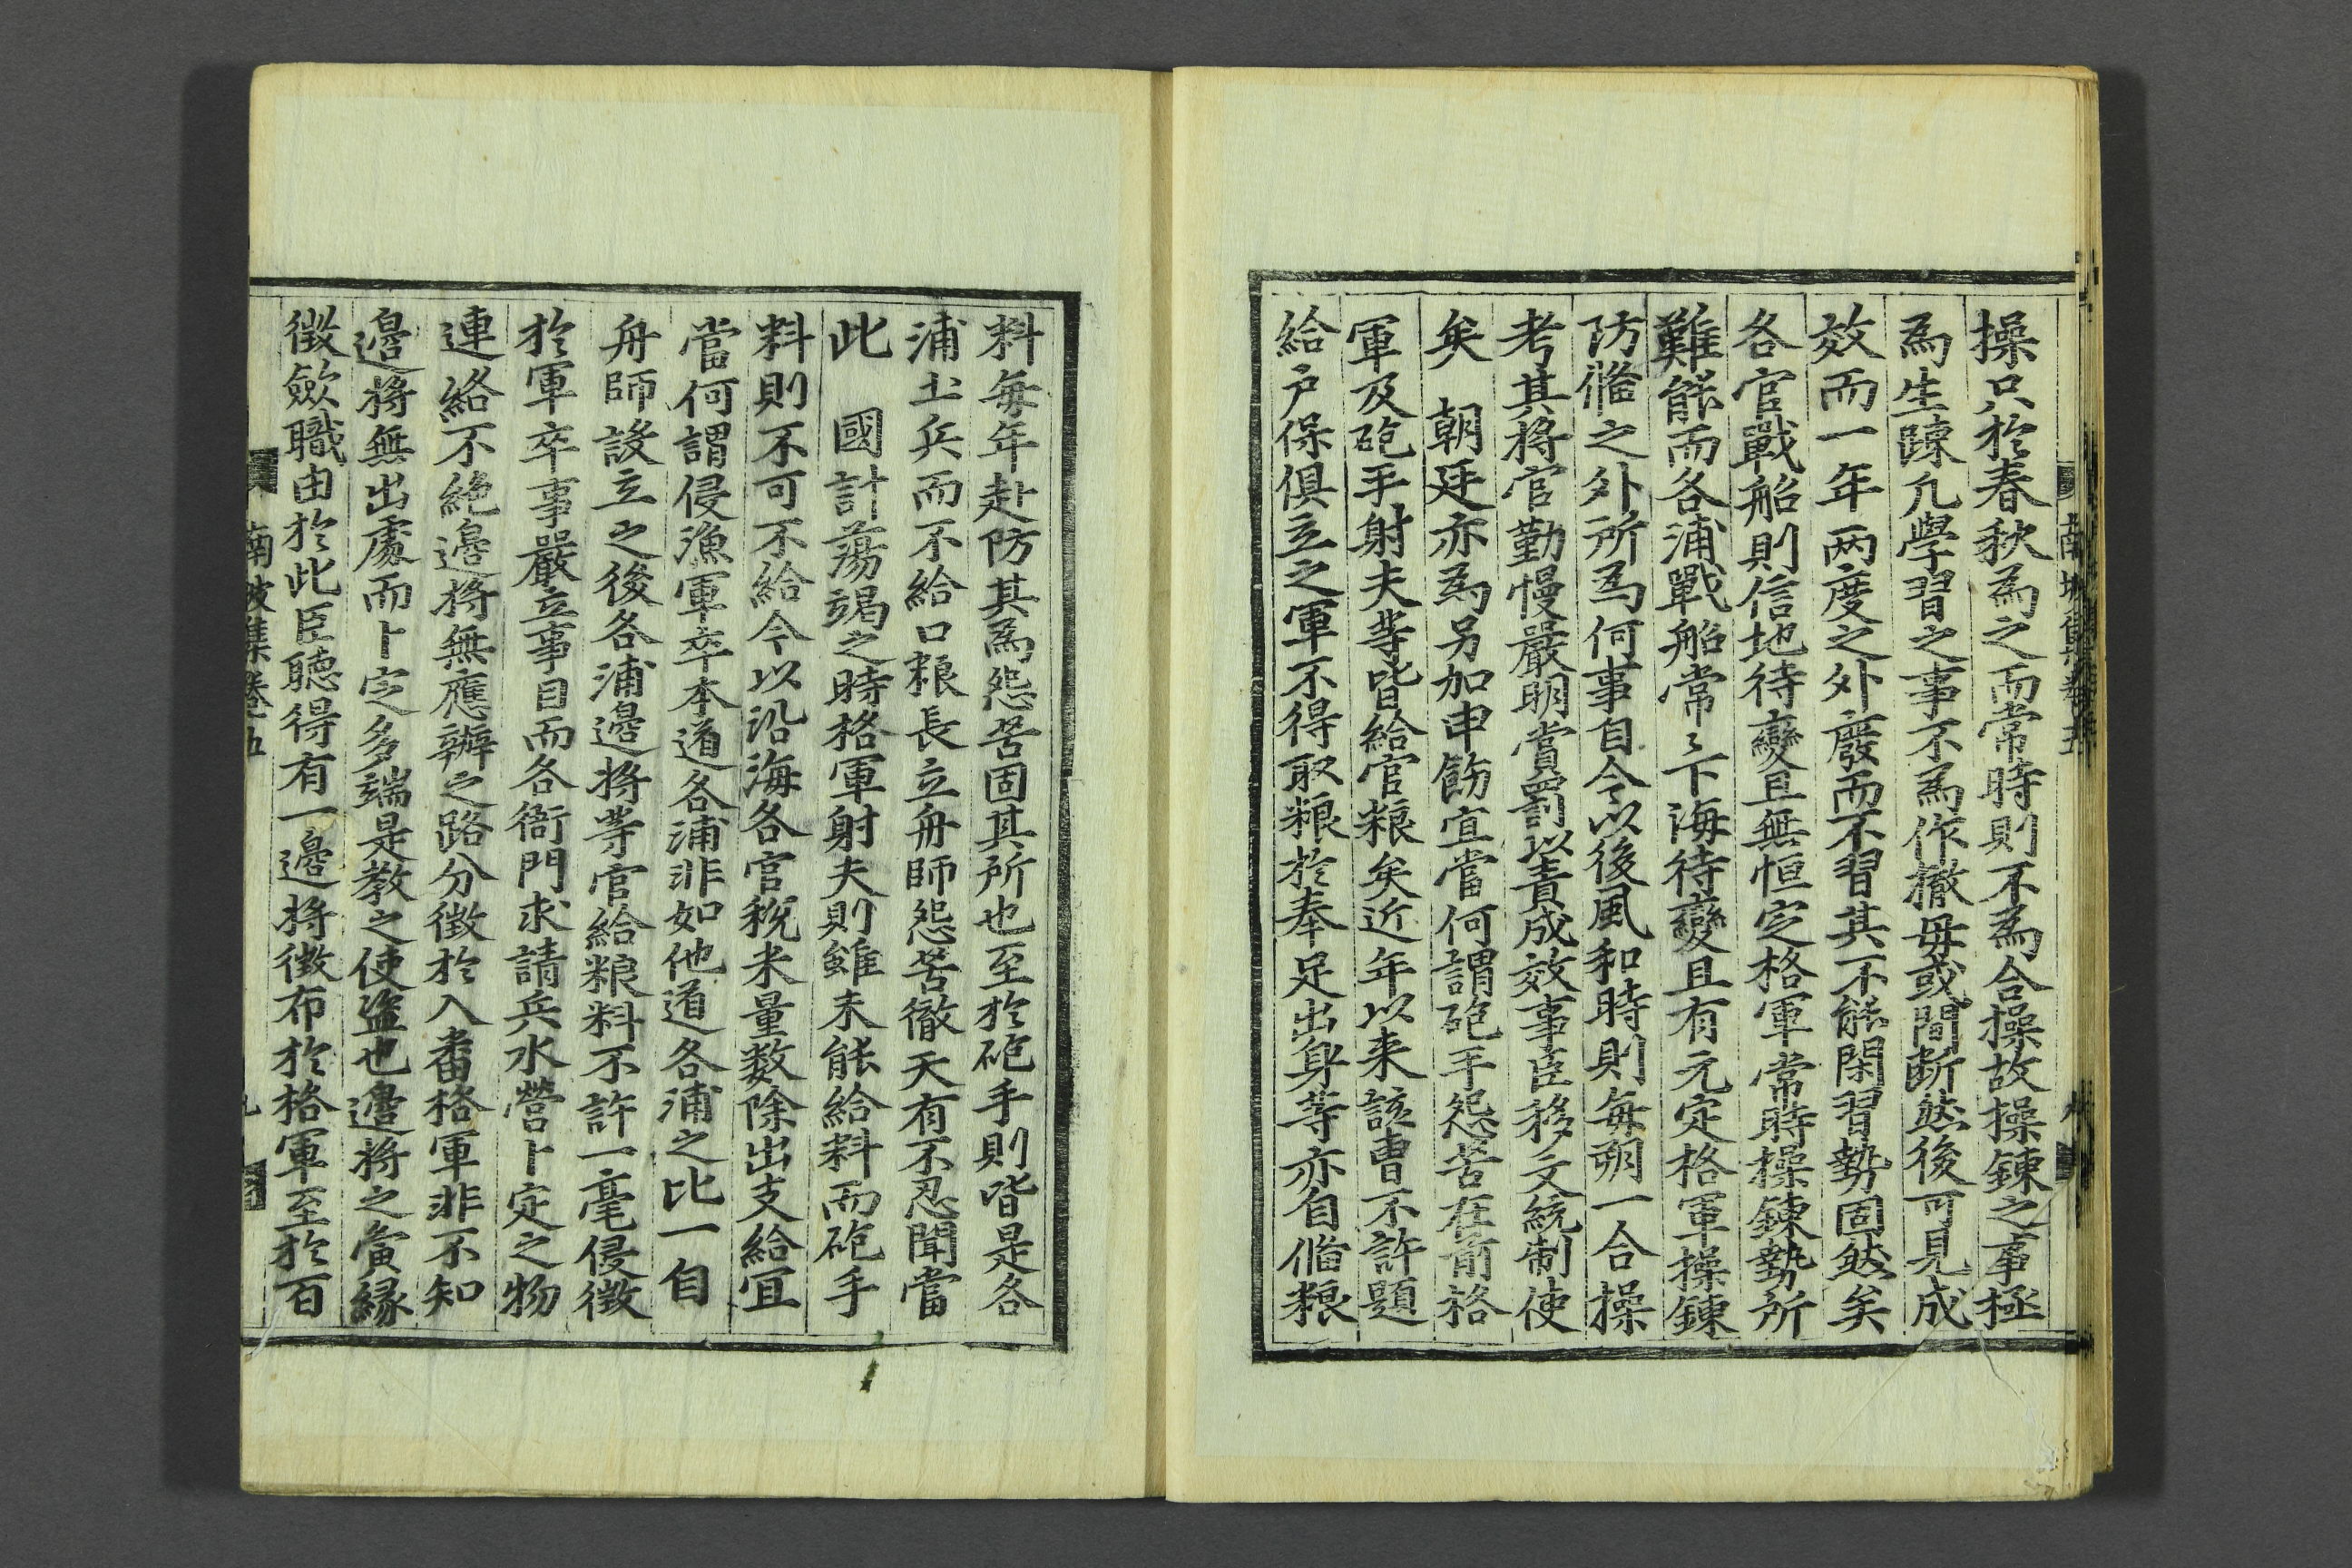 操只於春秋爲之而常時則不爲合操故操鍊之事極
爲生踈凡學習之事不爲作撤毋或間斷然後可見成
效而一年两度之外廢而不習其不能閑習勢固然矣
各官戰船則信地待變且無恒定格軍常時操鍊勢所
難能而各浦戰船常〻下海待變且有元定格軍操鍊
防俻之外所爲何事自今以後風和時則每朔一合操
考其將官勤慢嚴明賞罰以責成效事臣移文統制使
矣　朝廷亦爲另加申飭宜當何謂砲手怨苦在前格
軍及砲手射夫等皆給官粮矣近年以来該曹不許題
給户保俱立之軍不得取粮於奉足出身等亦自俻粮
料每年赴防其爲怨苦固其所也至於砲手則皆是各
浦土兵而不給口粮長立舟師怨苦徹天有不忍聞當
此　國計蕩竭之時格軍射夫則雖未能給料而砲手
料則不可不給今以沿海各官稅米量数除出支給宜
當何謂侵漁軍卒本道各浦非如他道各浦之比一自
舟師設立之後各浦邊將等官給粮料不許一毫侵徵
於軍卒事嚴立事目而各衙門求請兵水營卜定之物
連絡不絶邊將無應辦之路分徵於入番格軍非不知
邊將無出處而卜定多端是教之使盜也邊將之夤緣
徵歛職由於此臣聽得有一邊將徵布於格軍至於百
南坡集卷五